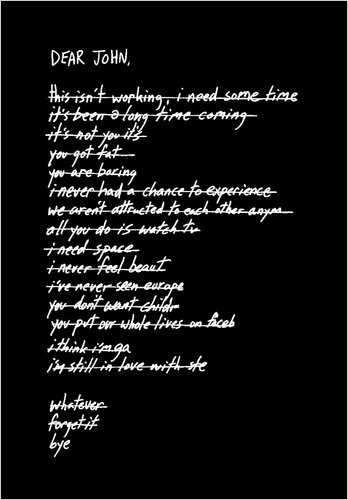 DEAR JOHN,
this isn't working, i need some time
it's been a long time coming
it's not you it's
you got fat
you are boring
i never had a chance to experience
we aren't attracted to each other anym
all you do is watch tv
i need space
i never feel beaut
i've never seen europe
you don't want childr
you put our whole lives on faceb
i think i'm ga
i'm still in love with ste
whatever
forget it
bye